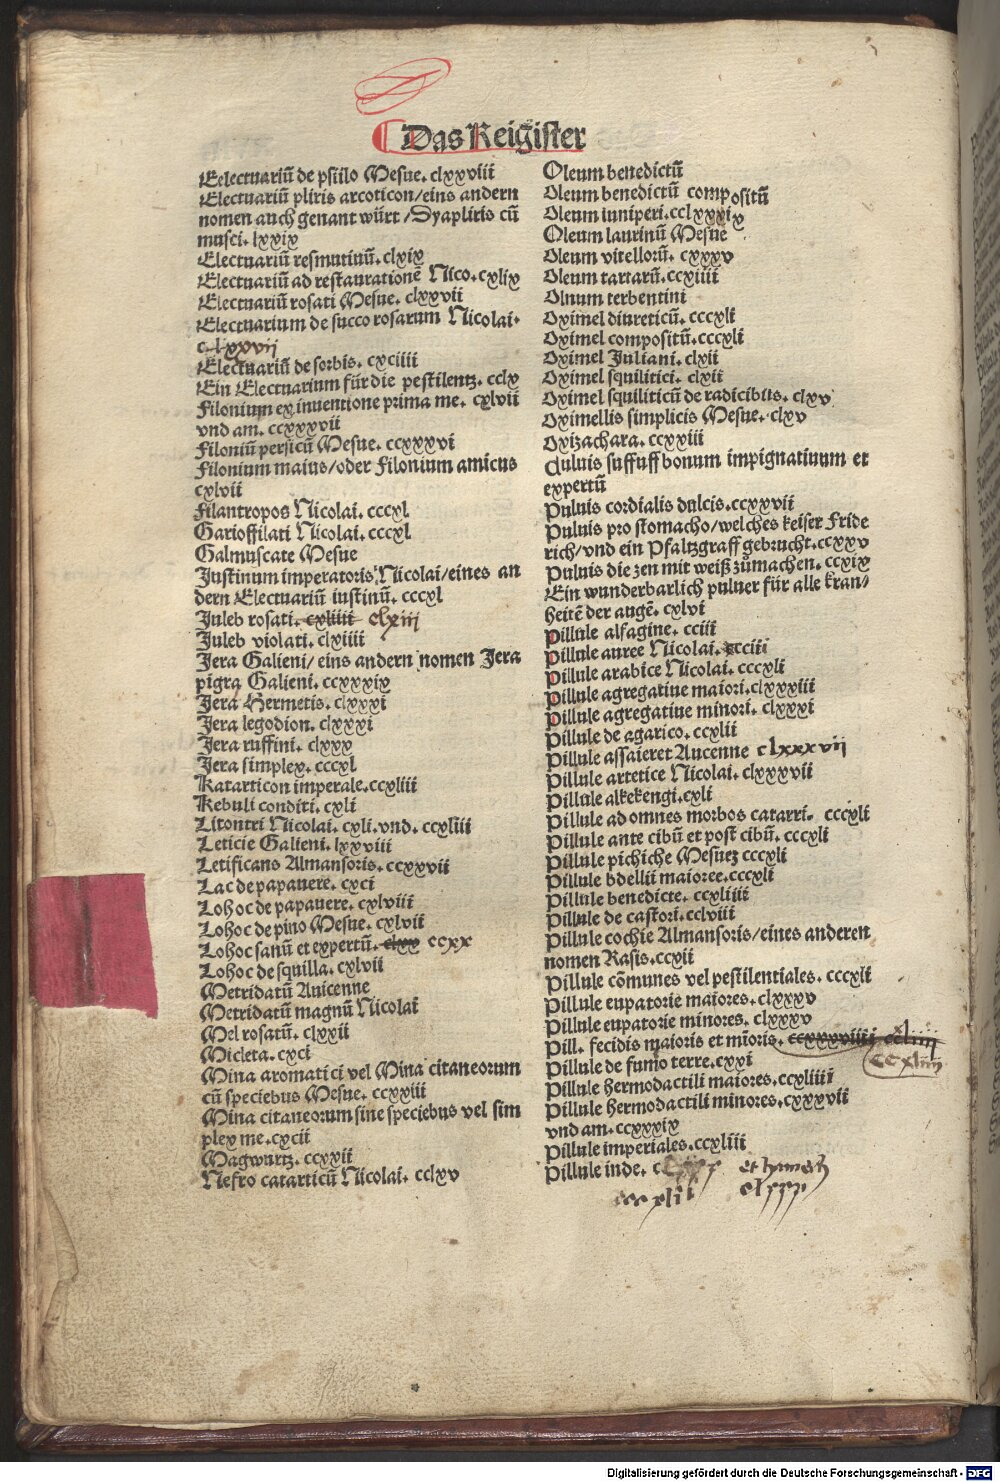 Das Reigister
Eelectuariū de psilio Mesue. clxxviii
Electuariū pliris arcoticon/eins andern
nomen auch genant würt/Dyapliris cū
musci. lxxix
Electuariū resmutinū. clxix
Electuariū ad restaurationē Nico. cxlix
Electuariū rosati Mesue. clxxvii
Electuarium de succo rosarum Nicolai.
clxxvij
Electuariū de sorbis. cxciiii
Ein Electuarium für die pestilentz. cclx
Filonium ex inuentione prima me. cxlvii
vnd am. ccxxxvii
Filoniū persicū Mesue. ccxxxvi
Filonium maius/oder Filonium amicus
cxlvii
Filantropos Nicolai. cccxl
Gariofilati Nicolai. cccxl
Galmuscate Mesue
Justinum imperatoris Nicolai/eines an
dern Electuariū iustinū. cccxl
Juleb rosati. cxliiii clxiij
Juleb violati. clxiiii
Jera Galieni/ eins andern nomen Jera
pigra Galieni. ccxxxix
Jera Hermetis. clxxxi
Jera legodion. clxxxi
Jera ruffini. clxxx
Jera simplex. cccxl
Katarticon imperale. ccxliii
Kebuli conditi. cxli
Litontri Nicolai. cxli. vnd. ccxliii
Leticie Galieni. lxxviii
Letificans Almansoris. ccxxvii
Lac de papauere. cxci
Lohoc de papauere. cxlviii
Lohoc de pino Mesue. cxlvii
Lohoc sanū et expertū. clxx ccxx
Lohoc de squilla. cxlvii
Metridatū Auicenne
Metridatū magnū Nicolai
Mel rosatū. clxxii
Micleta. cxci
Mina aromatici vel Mina citaneorum
cū speciebus Mesue. ccxxiii
Mina citaneorum sine speciebus vel sim
plex me. cxcii
Magwurtz. ccxxii
Nefro catarticū Nicolai. cclxv
Oleum benedictū
Oleum benedictū compositū
Oleum iuniperi. cclxxxix
Oleum laurinū Mesue
Oleum vitellorū. cxxxv
Oleum tartarū. ccxiiii
Olnum terbentini
Oximel diureticū. cccxli
Oximel compositū. cccxli
Oximel Juliani. clxii
Oximel squilitici. clxii
Oximel squiliticū de radicibus. clxv
Oximellis simplicis Mesue. clxv
Oxizachara. ccxxiii
Puluis suffuff bonum impignatiuum et
expertū
Puluis cordialis dulcis. ccxxvii
Puluis pro stomacho/welches keiser Fride
rich/vnd ein Pfaltzgraff gebrucht. ccxxv
Puluis die zen mit weiß zůmachen. ccxix
Ein wunderbarlich puluer für alle kran/
heitē der augē. cxlvi
Pillule alfagine. cciii
Pillule auree Nicolai. cciii
Pillule arabice Nicolai. cccxli
Pillule agregatiue maiori. clxxxiii
Pillule agregatiue minori. clxxxi
Pillule de agarico. ccxlii
Pillule assaieret Aucenne clxxxvij
Pillule artetice Nicolai. clxxxvii
Pillule alkekengi. cxli
Pillule ad omnes morbos catarri. cccxli
Pillule ante cibū et post cibū. cccxli
Pillule pichiche Mesuez cccxli
Pillule bdellii maioree. cccxli
Pillule benedicte. ccxliiii
Pillule de castori. cclviii
Pillule cochie Almansoris/eines anderen
nomen Rasis. ccxii
Pillule cōmunes vel pestilentiales. cccxli
Pillule eupatorie maiores. clxxxv
Pillule eupatorie minores. clxxxv
Pill. fecidis maioris et mīoris. ccxxxviiii ccliiij
ccxliiij
Pillule de fumo terre. cxxi
Pillule hermodactili maiores. ccxliiii
Pillule hermodactili minores. cxxxvii
vnd am. ccxxxix
Pillule imperiales. ccxliii
Pillule inde.
cccxlii
Digitalisierung gefördert durch die Deutsche Forschungsgemeinschaft - DFG